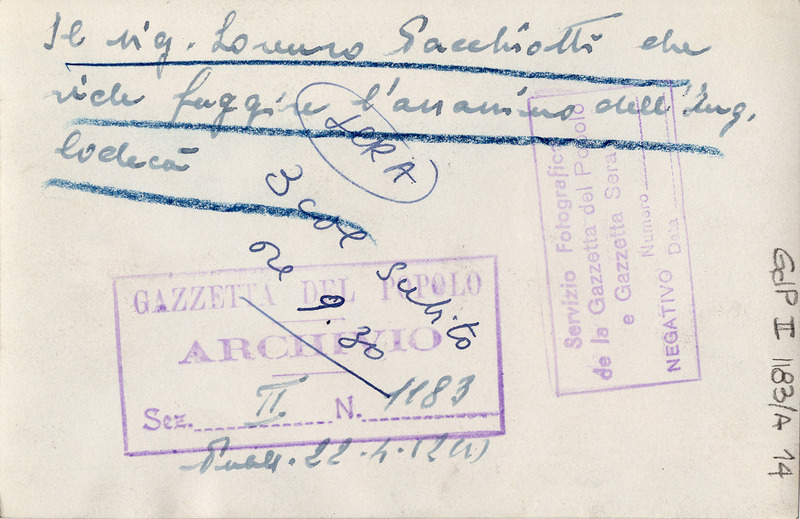 Il sig. Lorenzo Pacchiotti che
vide fuggire l'assassino dell'Ing.
Codecà
SERA
3 col subito
ore 9.30
GAZZETTA DEL POPOLO
ARCHIVIO
Sez. II N. 1183
Pubbl. 22-4-
Servizio Fotografico
de la Gazzetta del Popolo
e Gazzetta Sera
Numero
NEGATIVO Data
GdP II 1183/A 14